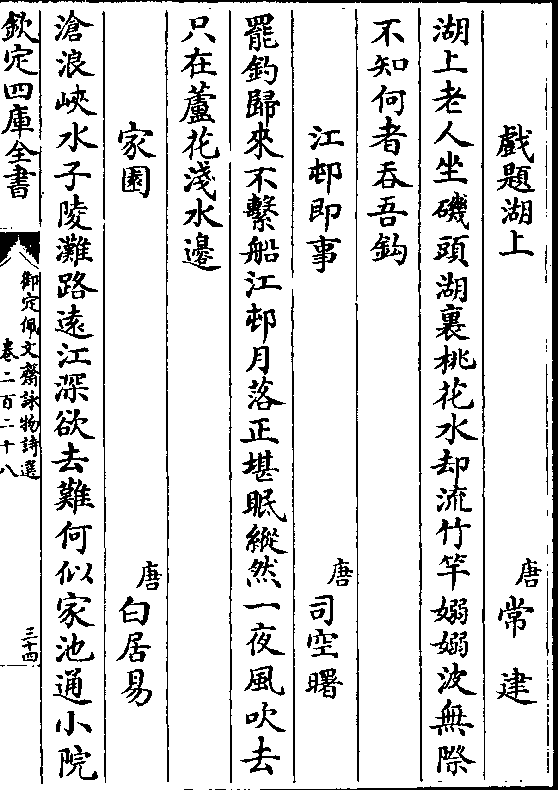 戲題湖上
唐 常建
湖上老人坐磯頭湖裏桃花水却流竹竿嫋嫋波無際
不知何者吞吾鈎
江邨即事
唐 司空曙
罷釣歸來不繫船江邨月落正堪眠縱然一夜風吹去
只在蘆花淺水邊
家園
唐 白居易
滄浪峽水子陵灘路遠江深欲去難何似家池通小院
欽定四庫全書
御定佩文齋詠物詩選
卷二百二十八
三十四